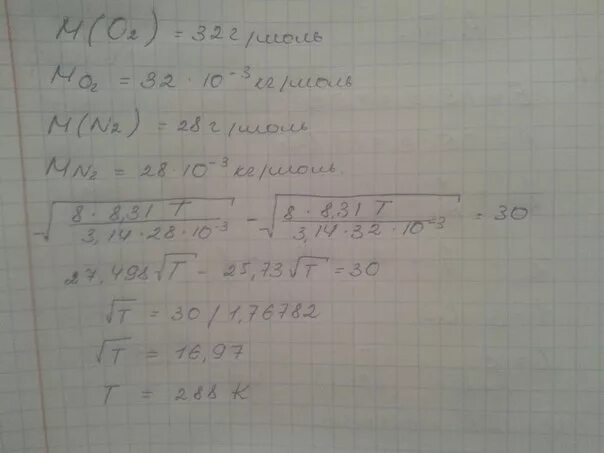 M(O₂) = 32 г/моль
M O₂ = 32 · 10⁻³ кг/моль
M(N₂) = 28 г/моль
M N₂ = 28 · 10⁻³ кг/моль.
√(8 · 8,31 T / 3,14 · 28 · 10⁻³) − √(8 · 8,31 T / 3,14 · 32 · 10⁻³) = 30
27,498√T − 25,73√T = 30
√T = 30 / 1,76782
√T = 16,97
T = 288 К